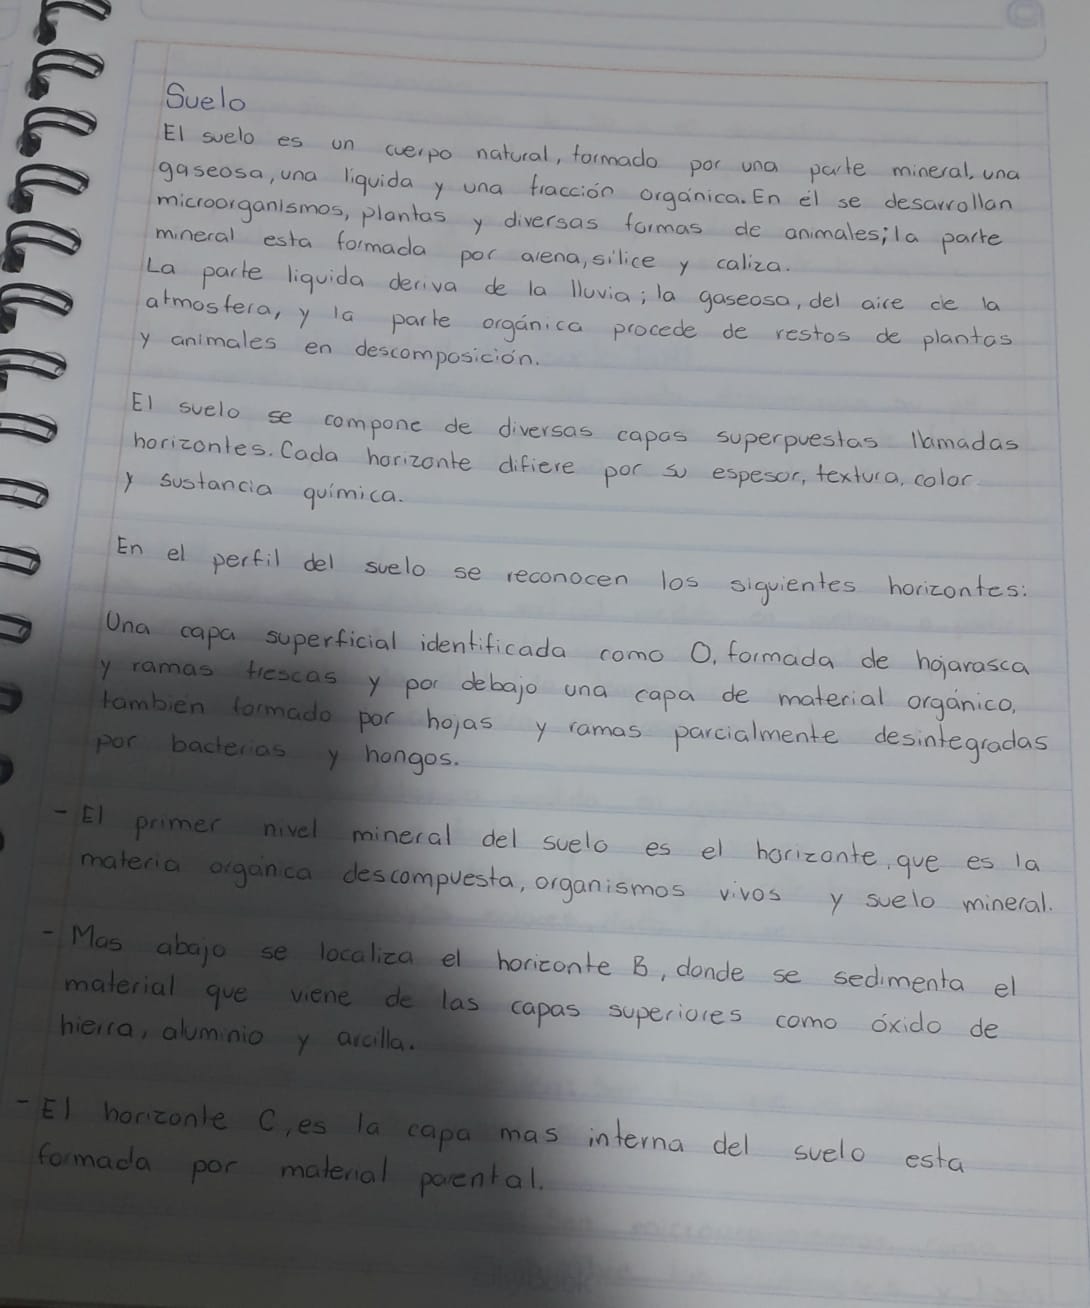 Suelo
El suelo es un cuerpo natural, formado por una parte mineral, una
gaseosa, una liquida y una fracción orgánica. En él se desarrollan
microorganismos, plantas y diversas formas de animales; la parte
mineral esta formada por arena, silice y caliza.
La parte liquida deriva de la lluvia; la gaseosa, del aire de la
atmosfera, y la parte orgánica procede de restos de plantas
y animales en descomposición.
El suelo se compone de diversas capas superpuestas llamadas
horizontes. Cada horizonte difiere por su espesor, textura, color
y sustancia química.
En el perfil del suelo se reconocen los siguientes horizontes:
Una capa superficial identificada como O, formada de hojarasca
y ramas frescas y por debajo una capa de material orgánico,
tambien formado por hojas y ramas parcialmente desintegradas
por bacterias y hongos.
- El primer nivel mineral del suelo es el horizonte, que es la
materia orgánica descompuesta, organismos vivos y suelo mineral.
- Mas abajo se localiza el horizonte B, donde se sedimenta el
material que viene de las capas superiores como óxido de
hierra, aluminio y arcilla.
- El horizonte C, es la capa mas interna del suelo esta
formada por material parental.